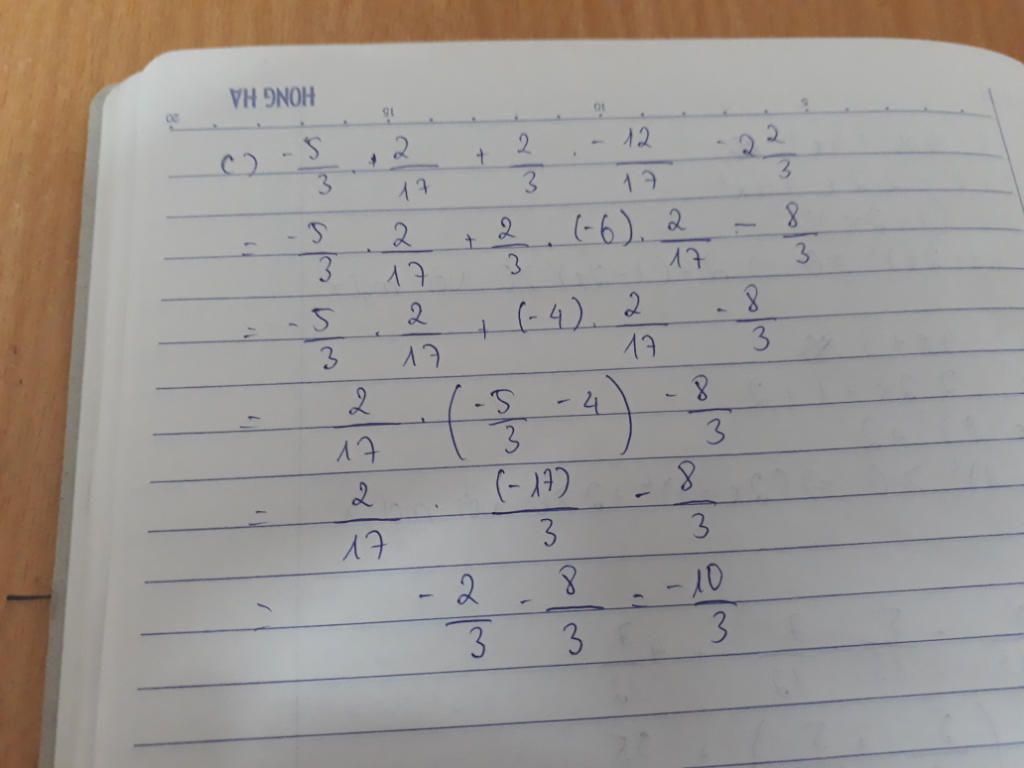 HONG HA
20 15 10 5
c) -5/3 . 2/17 + 2/3 . -12/17 - 2 2/3
= -5/3 . 2/17 + 2/3 . (-6) . 2/17 - 8/3
= -5/3 . 2/17 + (-4) . 2/17 - 8/3
= 2/17 . (-5/3 - 4) - 8/3
= 2/17 . (-17)/3 - 8/3
= -2/3 - 8/3 = -10/3